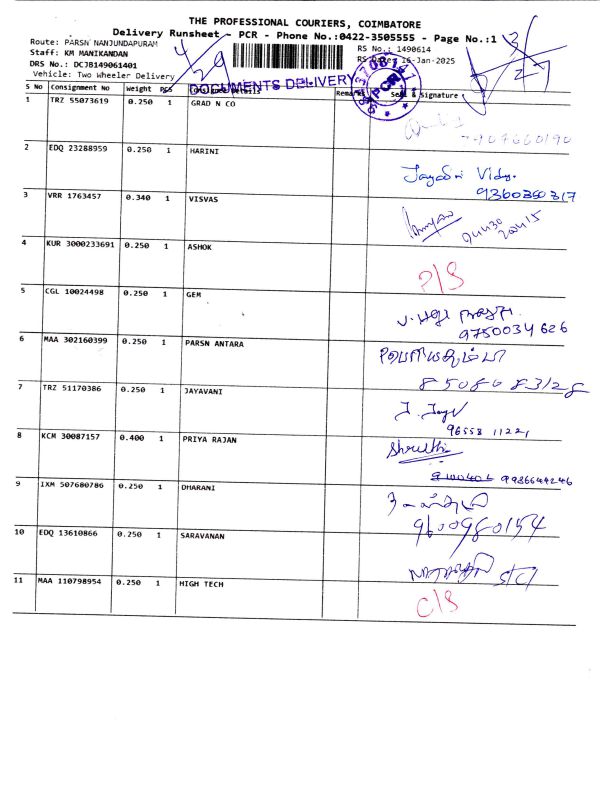 THE PROFESSIONAL COURIERS, COIMBATORE
Delivery Runsheet - PCR - Phone No.:0422-3505555 - Page No.:1
Route: PARSN NANJUNDAPURAM
RS No.: 1490614
Staff: KM MANIKANDAN
16-Jan-2025
DRS No.: DCJB149061401
Vehicle: Two Wheeler Delivery
DOCUMENTS DELIVERY
PCR
S No Consignment No Weight PCS Remarks Seal & Signature
1 TRZ 55073619 0.250 1 GRAD N CO
2 EDQ 23288959 0.250 1 HARINI
9360360317
3 VRR 1763457 0.340 1 VISVAS
4 KUR 3000233691 0.250 1 ASHOK
5 CGL 10024498 0.250 1 GEM
9750034626
6 MAA 302160399 0.250 1 PARSN ANTARA
8508083128
7 TRZ 51170386 0.250 1 JAYAVANI
96558 11221
8 KCM 30087157 0.400 1 PRIYA RAJAN
Shruthi
9986644246
9 IXM 507680786 0.250 1 DHARANI
9600980154
10 EDQ 13610866 0.250 1 SARAVANAN
11 MAA 110798954 0.250 1 HIGH TECH
C/S